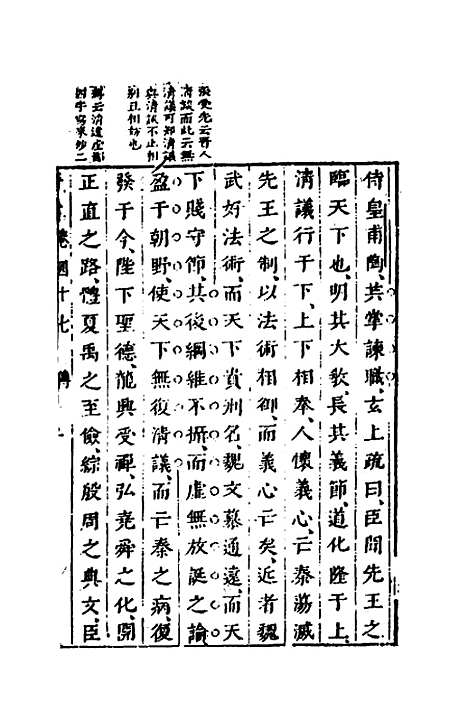 張受先云晉人
清談而此云無
清議可知清議
與清談不止相
別且相妨也
侍皇甫陶、共掌諫職、玄上疏曰、臣聞先王之
臨天下也、明其大敎、長其義節、道化隆于上、
清議行于下、上下相奉、人懷義心、亡秦蕩滅
先王之制、以法術相御、而義心亡矣、近者魏
武好法術、而天下貴刑名、魏文慕通遠、而天
下賤守節、其後綱維不攝、而虛無放誕之論
盈于朝野、使天下無復清議、而亡秦之病、復
發于今、陛下聖德、龍興受禪、弘堯舜之化、開
正直之路、體夏禹之至儉、綜殷周之典文、臣
卷四十七